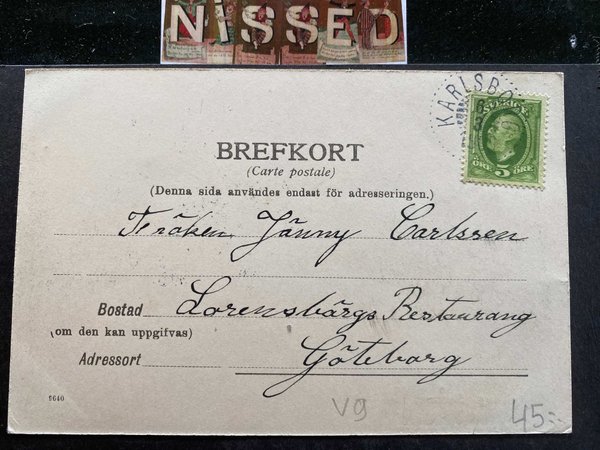 NISSED
KARLSBO
SVERIGE
ÖRE 5 ÖRE
BREFKORT
(Carte postale)
(Denna sida användes endast för adresseringen.)
Fröken Jänny Carlssen
Bostad Lorensbärgs Restaurang
(om den kan uppgifvas)
Adressort Göteborg
9640
VG
45:-